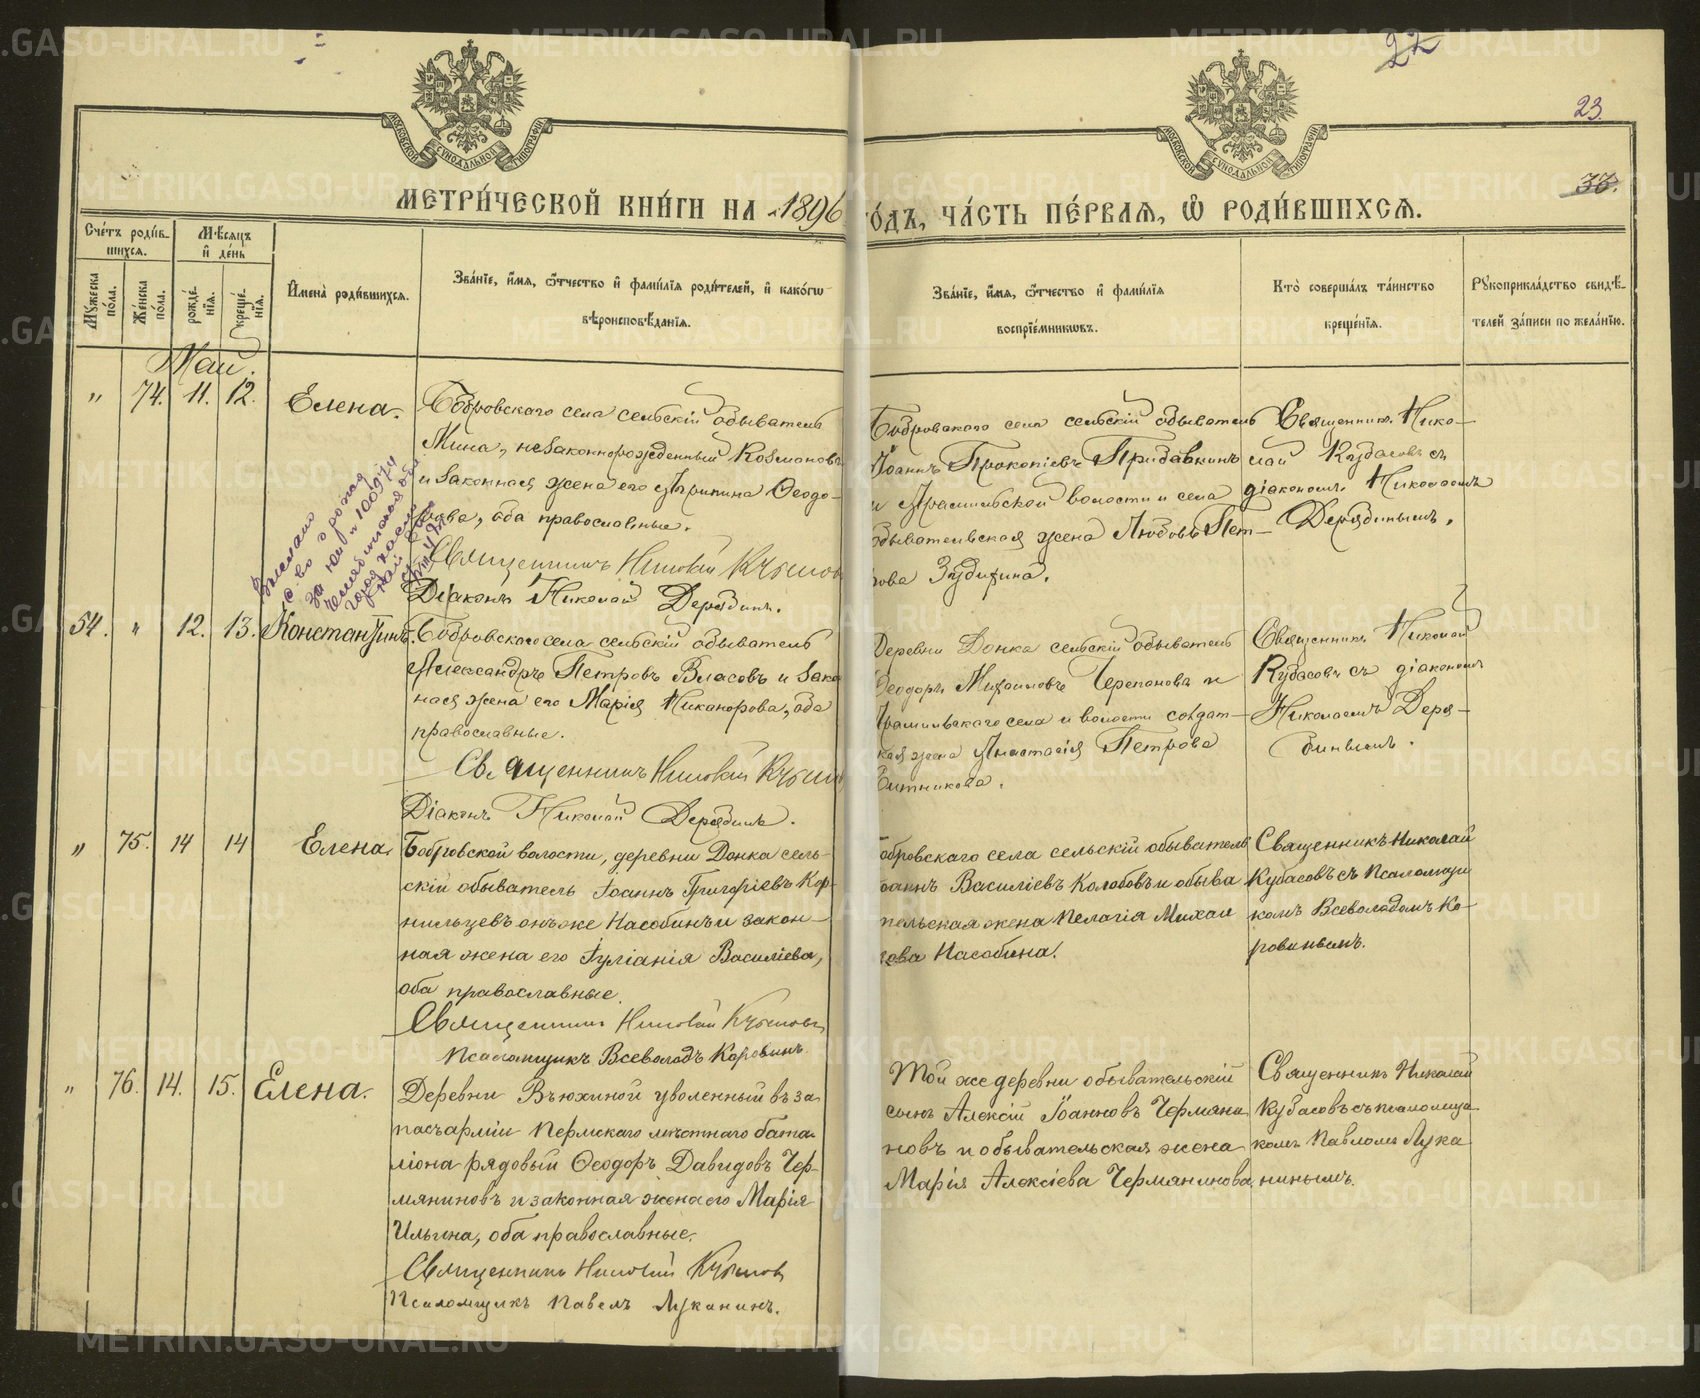 22
23.
33.
МОСКОВСКОЙ СѴНОДАЛЬНОЙ ТИПОГРАФІИ
МОСКОВСКОЙ СѴНОДАЛЬНОЙ ТИПОГРАФІИ
МЕТРИ́ЧЕСКОЙ КНИ́ГИ НА 1896
го́дъ, ча́сть пе́рваѧ, ѡ҆ роди́вшихсѧ.
Сче́тъ роди́в-
шихсѧ.
Мѣ́сѧцъ
и҆ де́нь
Мꙋ́жеска
по́ла.
Же́нска
по́ла.
рожде́-
нїѧ.
креще́-
нїѧ.
И҆мена̀ роди́вшихсѧ.
Зва́нїе, и҆́мѧ, ѻ҆́тчество и҆ фамѵ́лїѧ роди́телей, и҆ како́гѡ
вѣроисповѣ́данїѧ.
Зва́нїе, и҆́мѧ, ѻ҆́тчество и҆ фамѵ́лїѧ
воспрїе́мникѡвъ.
Кто̀ соверша́лъ та́инство
креще́нїѧ.
Рꙋкоприкла́дство свидѣ́-
телей за́писи по жела́нїю.
Май.
" 74. 11. 12. Елена.
Бобровскаго села сельскій обыватель
Мина, незаконнорожденный Козмановъ
и законная жена его Агрипина Ѳеодо-
рова, оба православные.
Священникъ Николай Кубасовъ
Діаконъ Николай Дерябинъ.
Бобровскаго села сельскій обыватель
Іоаннъ Прокопіевъ Придавкинъ
и Арамильской волости и села
обывательская жена Любовь Пет-
рова Зудихина.
Священникъ Нико-
лай Кубасовъ съ
діакономъ Николаемъ
Дерябинымъ.
54. " 12. 13. Константинъ.
Бобровскаго села сельскій обыватель
Александръ Петровъ Власовъ и закон
ная жена его Марія Никанорова, оба
православные.
Священникъ Николай Кубасовъ
Діаконъ Николай Дерябинъ.
Деревни Донка сельскій обыватель
Ѳеодоръ Михаиловъ Черепановъ и
Арамильскаго села и волости солдат-
ская жена Анастасія Петрова
Ситникова.
Священникъ Николай
Кубасовъ съ діакономъ
Николаемъ Деря-
бинымъ.
" 75. 14 14 Елена.
Бобровской волости, деревни Донка сель-
скій обыватель Іоаннъ Григоріевъ Кор-
нильцевъ онъ же Насобинъ и закон-
ная жена его Іуліанія Василіева,
оба православные.
Священникъ Николай Кубасовъ
Псаломщикъ Всеволодъ Коровинъ
обровскаго села сельскій обыватель
оаннъ Василіевъ Колобовъ и обыва
тельская жена Пелагія Михаи
лова Насобина.
Священникъ Николай
Кубасовъ съ Псаломщи
комъ Всеволодомъ Ко-
ровинымъ.
" 76. 14. 15. Елена.
Деревни Вьюхиной уволенный въ за-
пасъ арміи Пермскаго мѣстнаго бата-
ліона рядовый Ѳеодоръ Давидовъ Чер-
мяниновъ и законная жена его Марія
Ильина, оба православные.
Священникъ Николай Кубасовъ
Псаломщикъ Павелъ Луканинъ.
Той же деревни обывательскій
сынъ Алексій Іоанновъ Чермяни
новъ и обывательская жена
Марія Алексіева Чермянинова
Священникъ Николай
Кубасовъ съ псаломщи
комъ Павломъ Лука
нинымъ.
METRIKI.GASO-URAL.RU